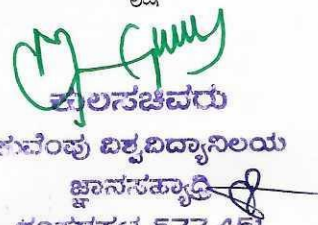 ಕುಲಸಚಿವರು
ಕುವೆಂಪು ವಿಶ್ವವಿದ್ಯಾನಿಲಯ
ಜ್ಞಾನಸಹ್ಯಾದ್ರಿ
577 451